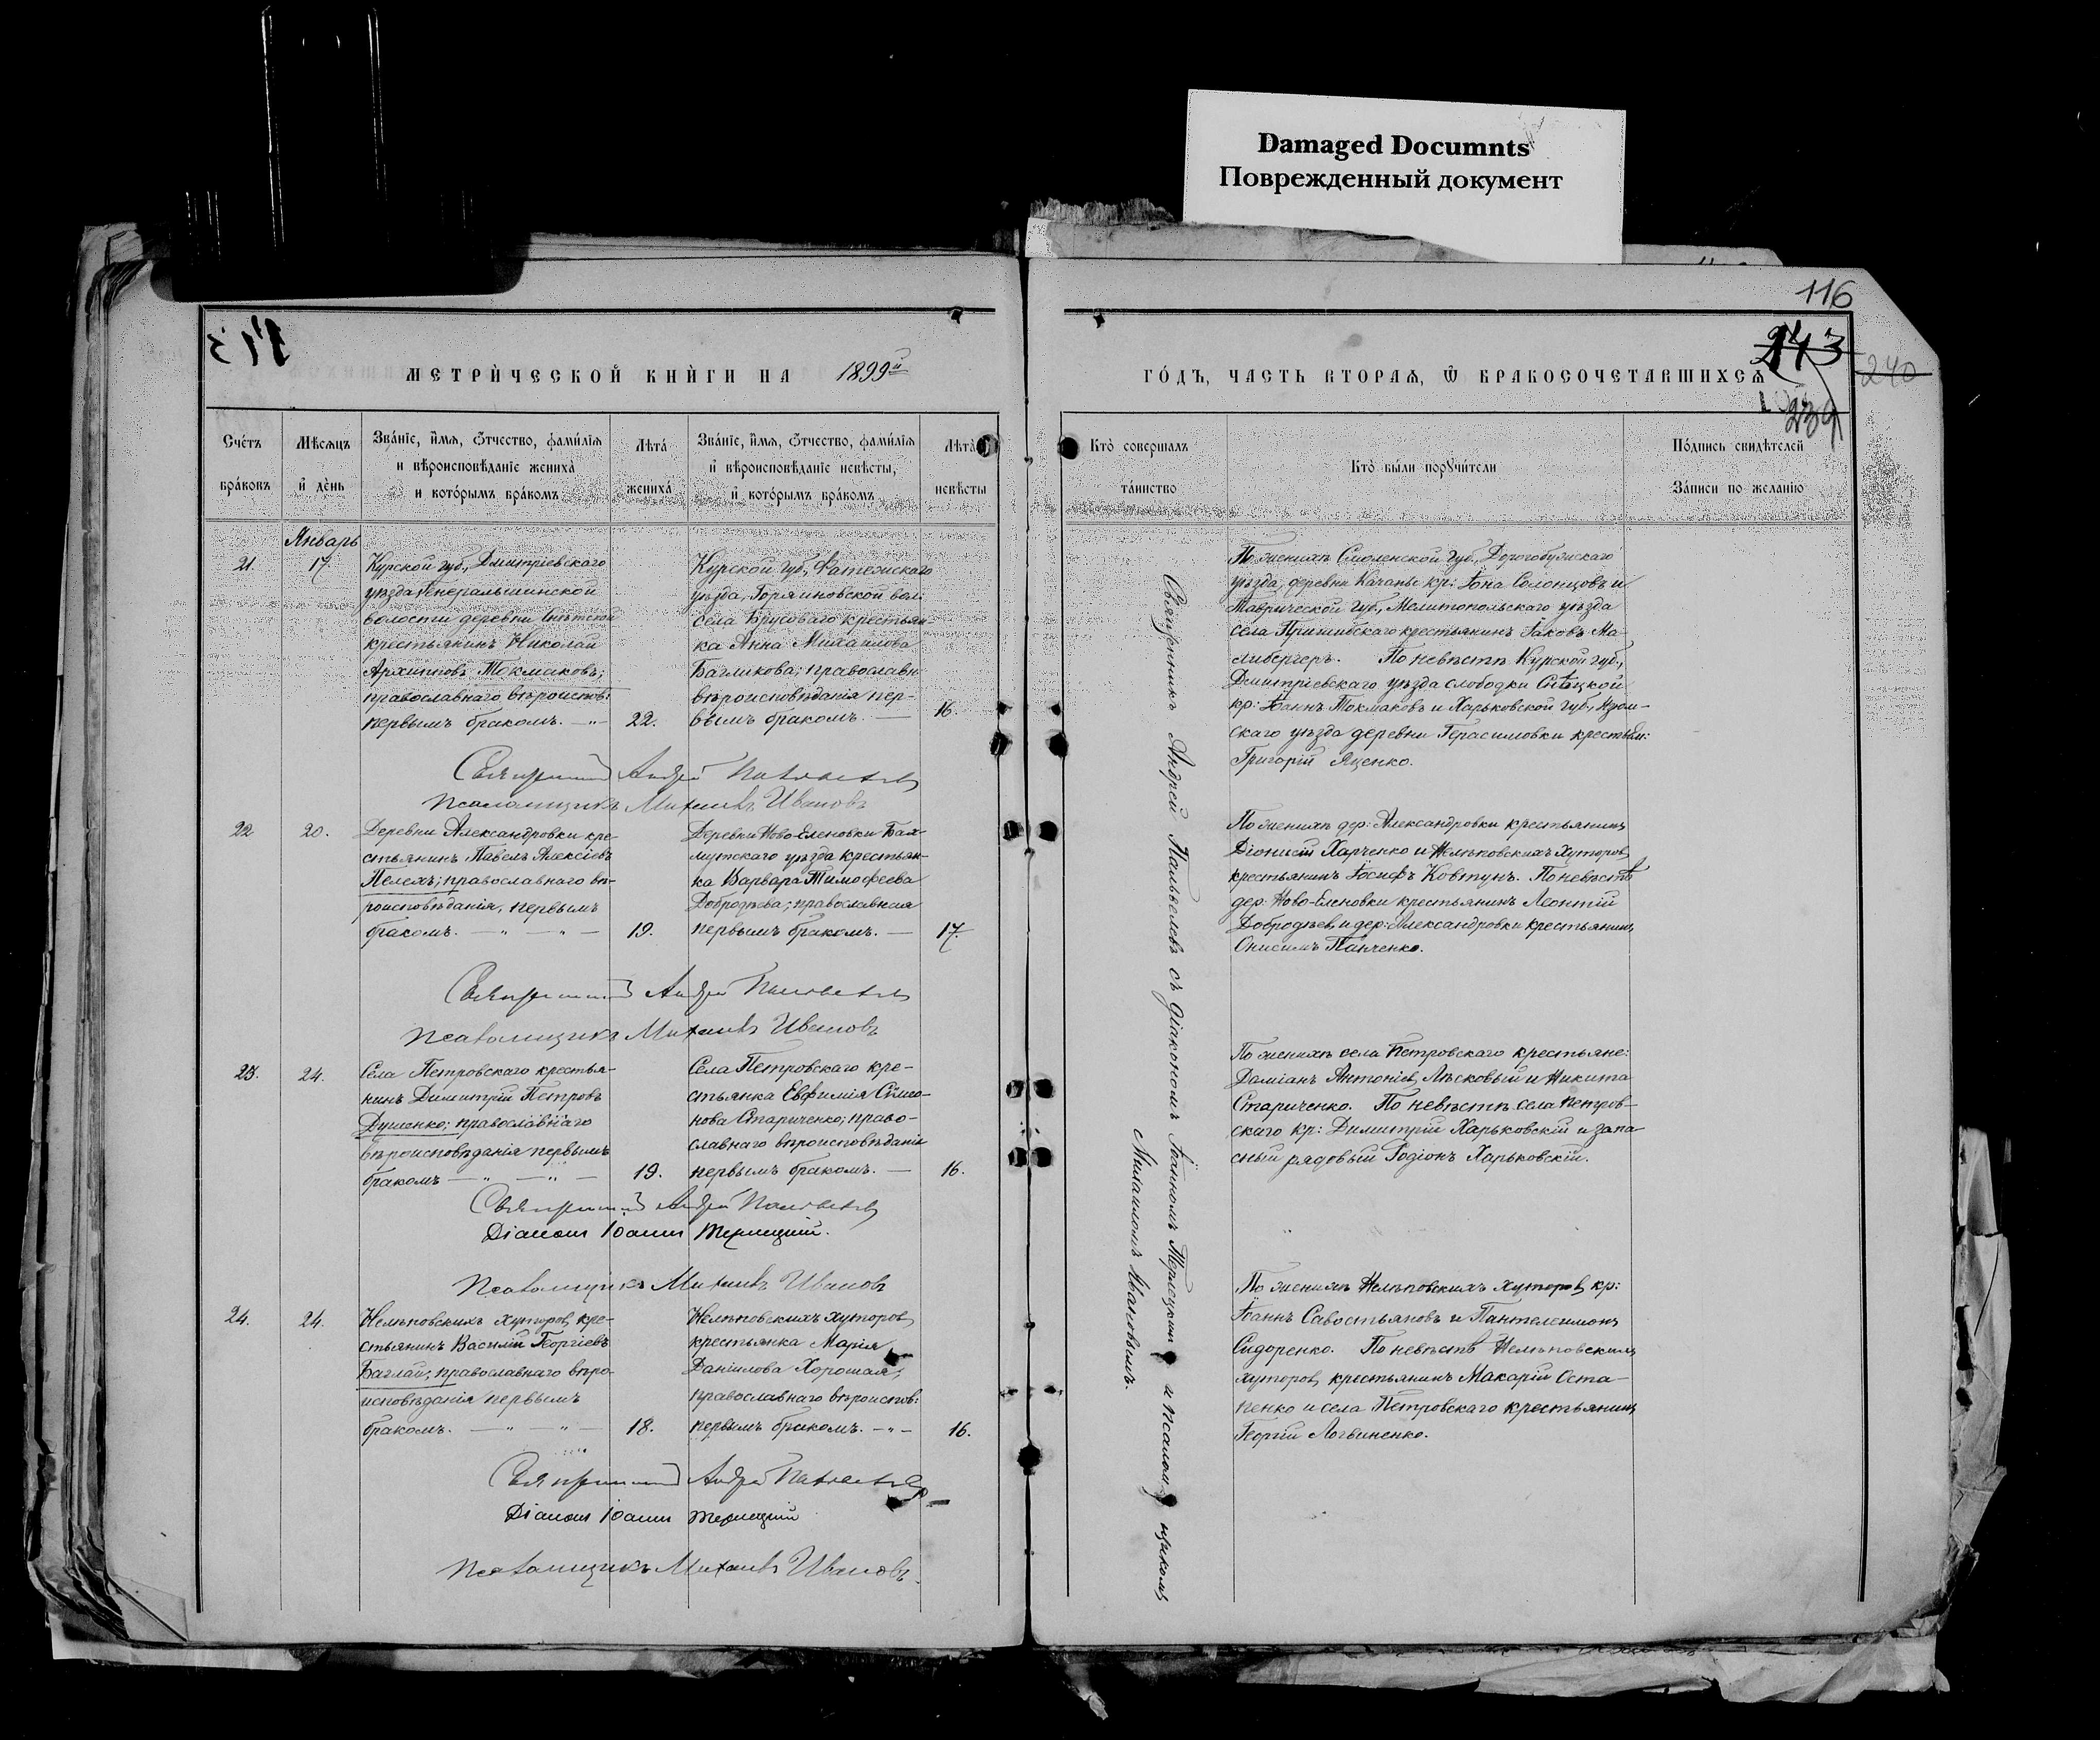 Damaged Documnts
Поврежденный документ
116
243
240
239
МЕТРИ́ЧЕСКОЙ КНИ́ГИ НА 1899й
ГО́ДЪ, ЧАСТЬ ВТОРАѦ, Ѿ БРАКОСОЧЕТАВШИХСѦ
Сче́тъ бра́ковъ
Мѣ́сѧцъ и҆ де́нь
Зва́нїе, и҆́мѧ, ѻ҆́тчество, фами́лїѧ и вѣроисповѣ́данїе жениха̀ и кото́рымъ бра́комъ
Лѣта̀ жениха̀
Зва́нїе, и҆́мѧ, ѻ҆́тчество, фами́лїѧ и҆ вѣроисповѣ́данїе невѣ́сты, и҆ кото́рымъ бра́комъ
Лѣта̀ невѣ́сты
Кто̀ совершалъ та́инство
Кто̀ бы́ли порꙋчи́тели
По́дпись свидѣ́телей За́писи по жела́нїю
Январь
21.
17
Курской губ., Дмитріевскаго
уѣзда Генеральшинской
волости деревни
крестьянинъ Николай
Архиповъ Токмаковъ;
православнаго вѣроиспов:
первымъ бракомъ. — " —
22.
Курской губ., Фатежскаго
уѣзда, Горяиновской вол.
села Брусоваго крестьян-
ка Анна Михаилова
Багликова; православн.
вѣроисповѣданія пер-
вымъ бракомъ. —
16.
По женихѣ Смоленской губ., Дорогобужскаго
уѣзда, деревни кр: Іона Солонцовъ и
Таврической губ., Мелитопольскаго уѣзда
села Пришибскаго крестьянинъ Іаковъ Ма-
либергеръ. По невѣстѣ Курской губ.,
Дмитріевскаго уѣзда слободки
кр: Іоаннъ Токмаковъ и Харьковской губ., Изюм-
скаго уѣзда деревни Герасимовки крестьян:
Григорій Яценко.
Священникъ Андрей Павловъ
Псаломщикъ Михаилъ Ивановъ
22
20.
Деревни Александровки кре-
стьянинъ Павелъ Алексіевъ
Пелехъ; православнаго вѣ-
роисповѣданія, первымъ
бракомъ. — " — " —
19.
Деревни Ново-Еленовки Бах-
мутскаго уѣзда крестьян-
ка Варвара Тимофеева
Добродѣева; православная
первымъ бракомъ. —
17.
По женихѣ дер: Александровки крестьянинъ
Діонисій Харченко и Нелѣповскихъ хуторовъ
крестьянинъ Іосифъ Ковтунъ. По невѣстѣ
дер: Ново-Еленовки крестьянинъ Леонтій
Добродѣевъ и дер: Александровки крестьянинъ
Онисимъ Панченко.
Псаломщикъ Михаилъ Ивановъ
23.
24.
Села Петровскаго крестья-
нинъ Димитрій Петровъ
Душенко; православнаго
вѣроисповѣданія первымъ
бракомъ — " — " —
19.
Села Петровскаго кре-
стьянка Евфимія Симо-
нова Стариченко; право-
славнаго вѣроисповѣданія
первымъ бракомъ. —
16.
По женихѣ села Петровскаго крестьяне:
Даміанъ Антоніевъ Лѣсковый и Никита
Стариченко. По невѣстѣ села Петров-
скаго кр: Димитрій Харьковскій и запа
сный рядовый Родіонъ Харьковскій.
Діаконъ Іоаннъ
Псаломщикъ Михаилъ Ивановъ
24.
24.
Нелѣповскихъ хуторовъ кре-
стьянинъ Василій Георгіевъ
Баглай; православнаго вѣро-
исповѣданія первымъ
бракомъ. — " — " —
18.
Нелѣповскихъ хуторовъ
крестьянка Марія
Даніилова Хорошая;
православнаго вѣроиспов:
первымъ бракомъ. — " —
16.
По женихѣ Нелѣповскихъ хуторовъ кр:
Іоаннъ Савостьяновъ и Пантелеимонъ
Сидоренко. По невѣстѣ Нелѣповскихъ
хуторовъ крестьянинъ Макарій Оста-
пенко и села Петровскаго крестьянинъ
Георгій Логвиненко.
Діаконъ Іоаннъ
Псаломщикъ Михаилъ Ивановъ.
Священникъ Андрей съ діакономъ Іоанномъ и псаломщикомъ
Михаиломъ Ивановымъ.